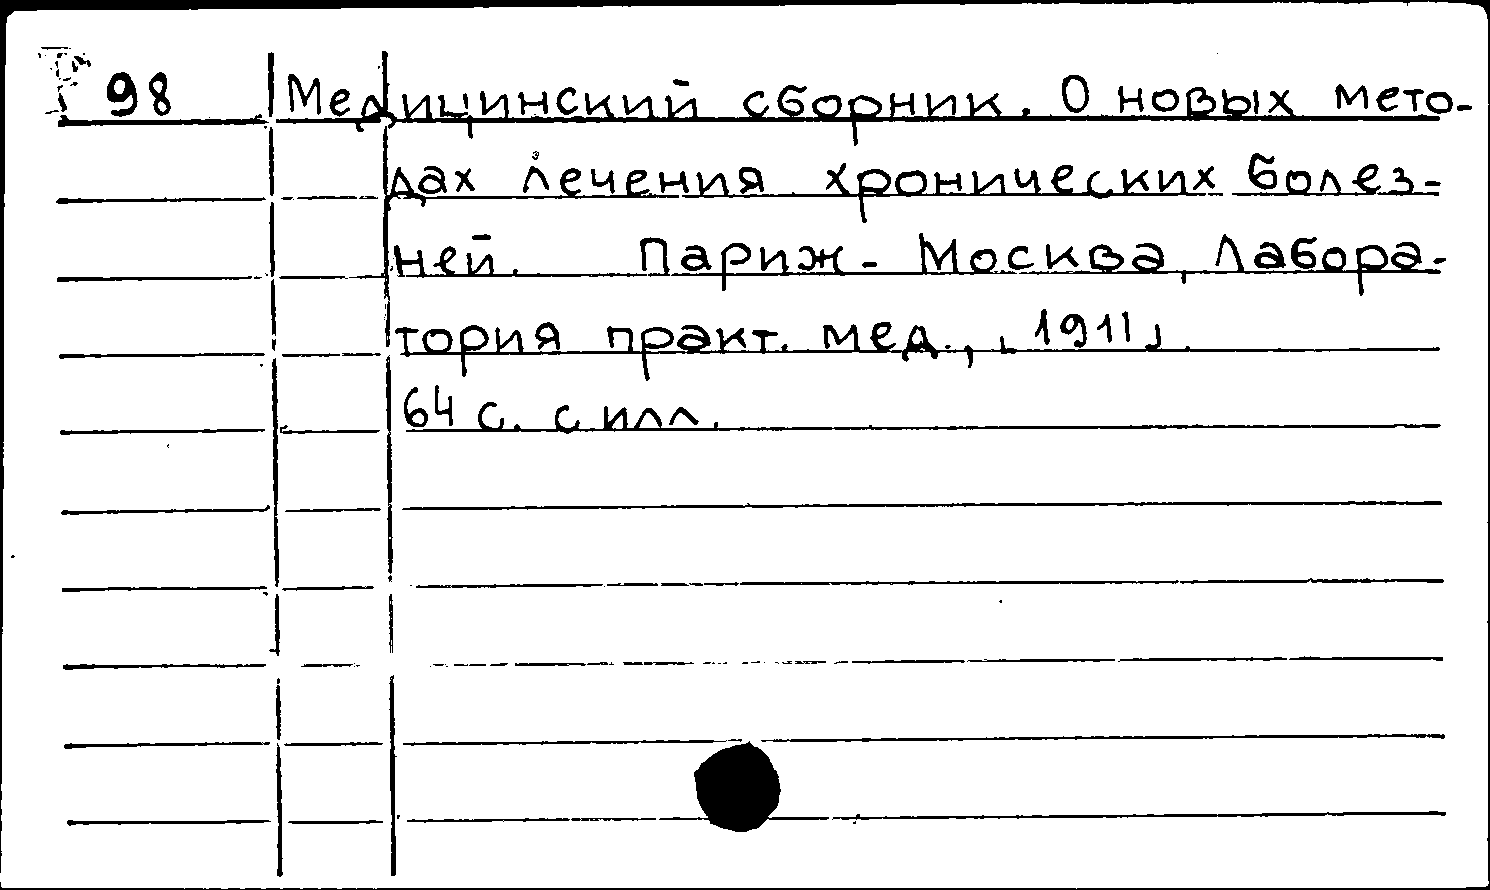 98 Медицинский сборник. О новых мето-
дах лечения хронических болез-
ней. Париж - Москва, Лабора-
тория практ. мед., [1911].
64 с. с илл.